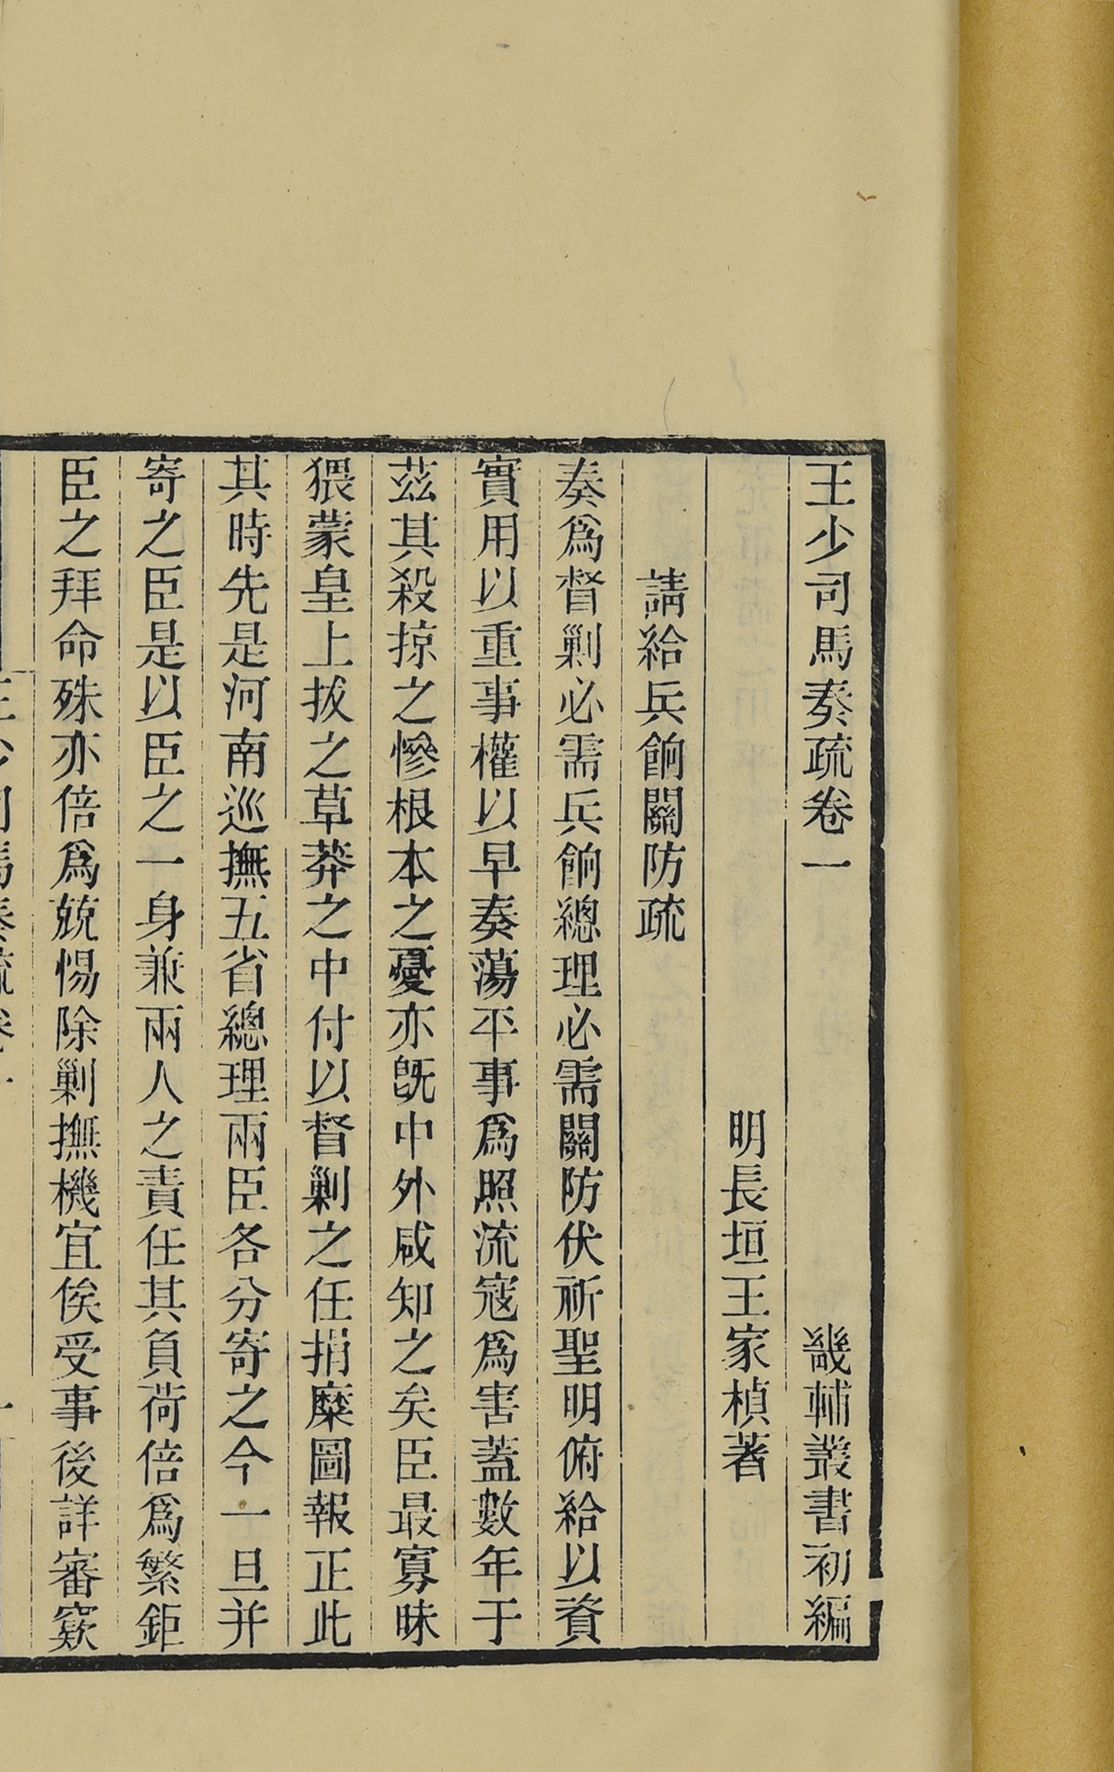 王少司馬奏疏卷一 畿輔叢書初編
明長垣王家楨著
請給兵餉關防疏
奏爲督剿必需兵餉總理必需關防伏祈聖明俯給以資
實用以重事權以早奏蕩平事爲照流寇爲害蓋數年于
茲其殺掠之慘根本之憂亦旣中外咸知之矣臣最寡昧
猥蒙皇上拔之草莽之中付以督剿之任捐糜圖報正此
其時先是河南巡撫五省總理兩臣各分寄之今一旦并
寄之臣是以臣之一身兼兩人之責任其負荷倍爲繁鉅
臣之拜命殊亦倍爲兢惕除剿撫機宜俟受事後詳審窾
王少司馬奏疏卷一 一